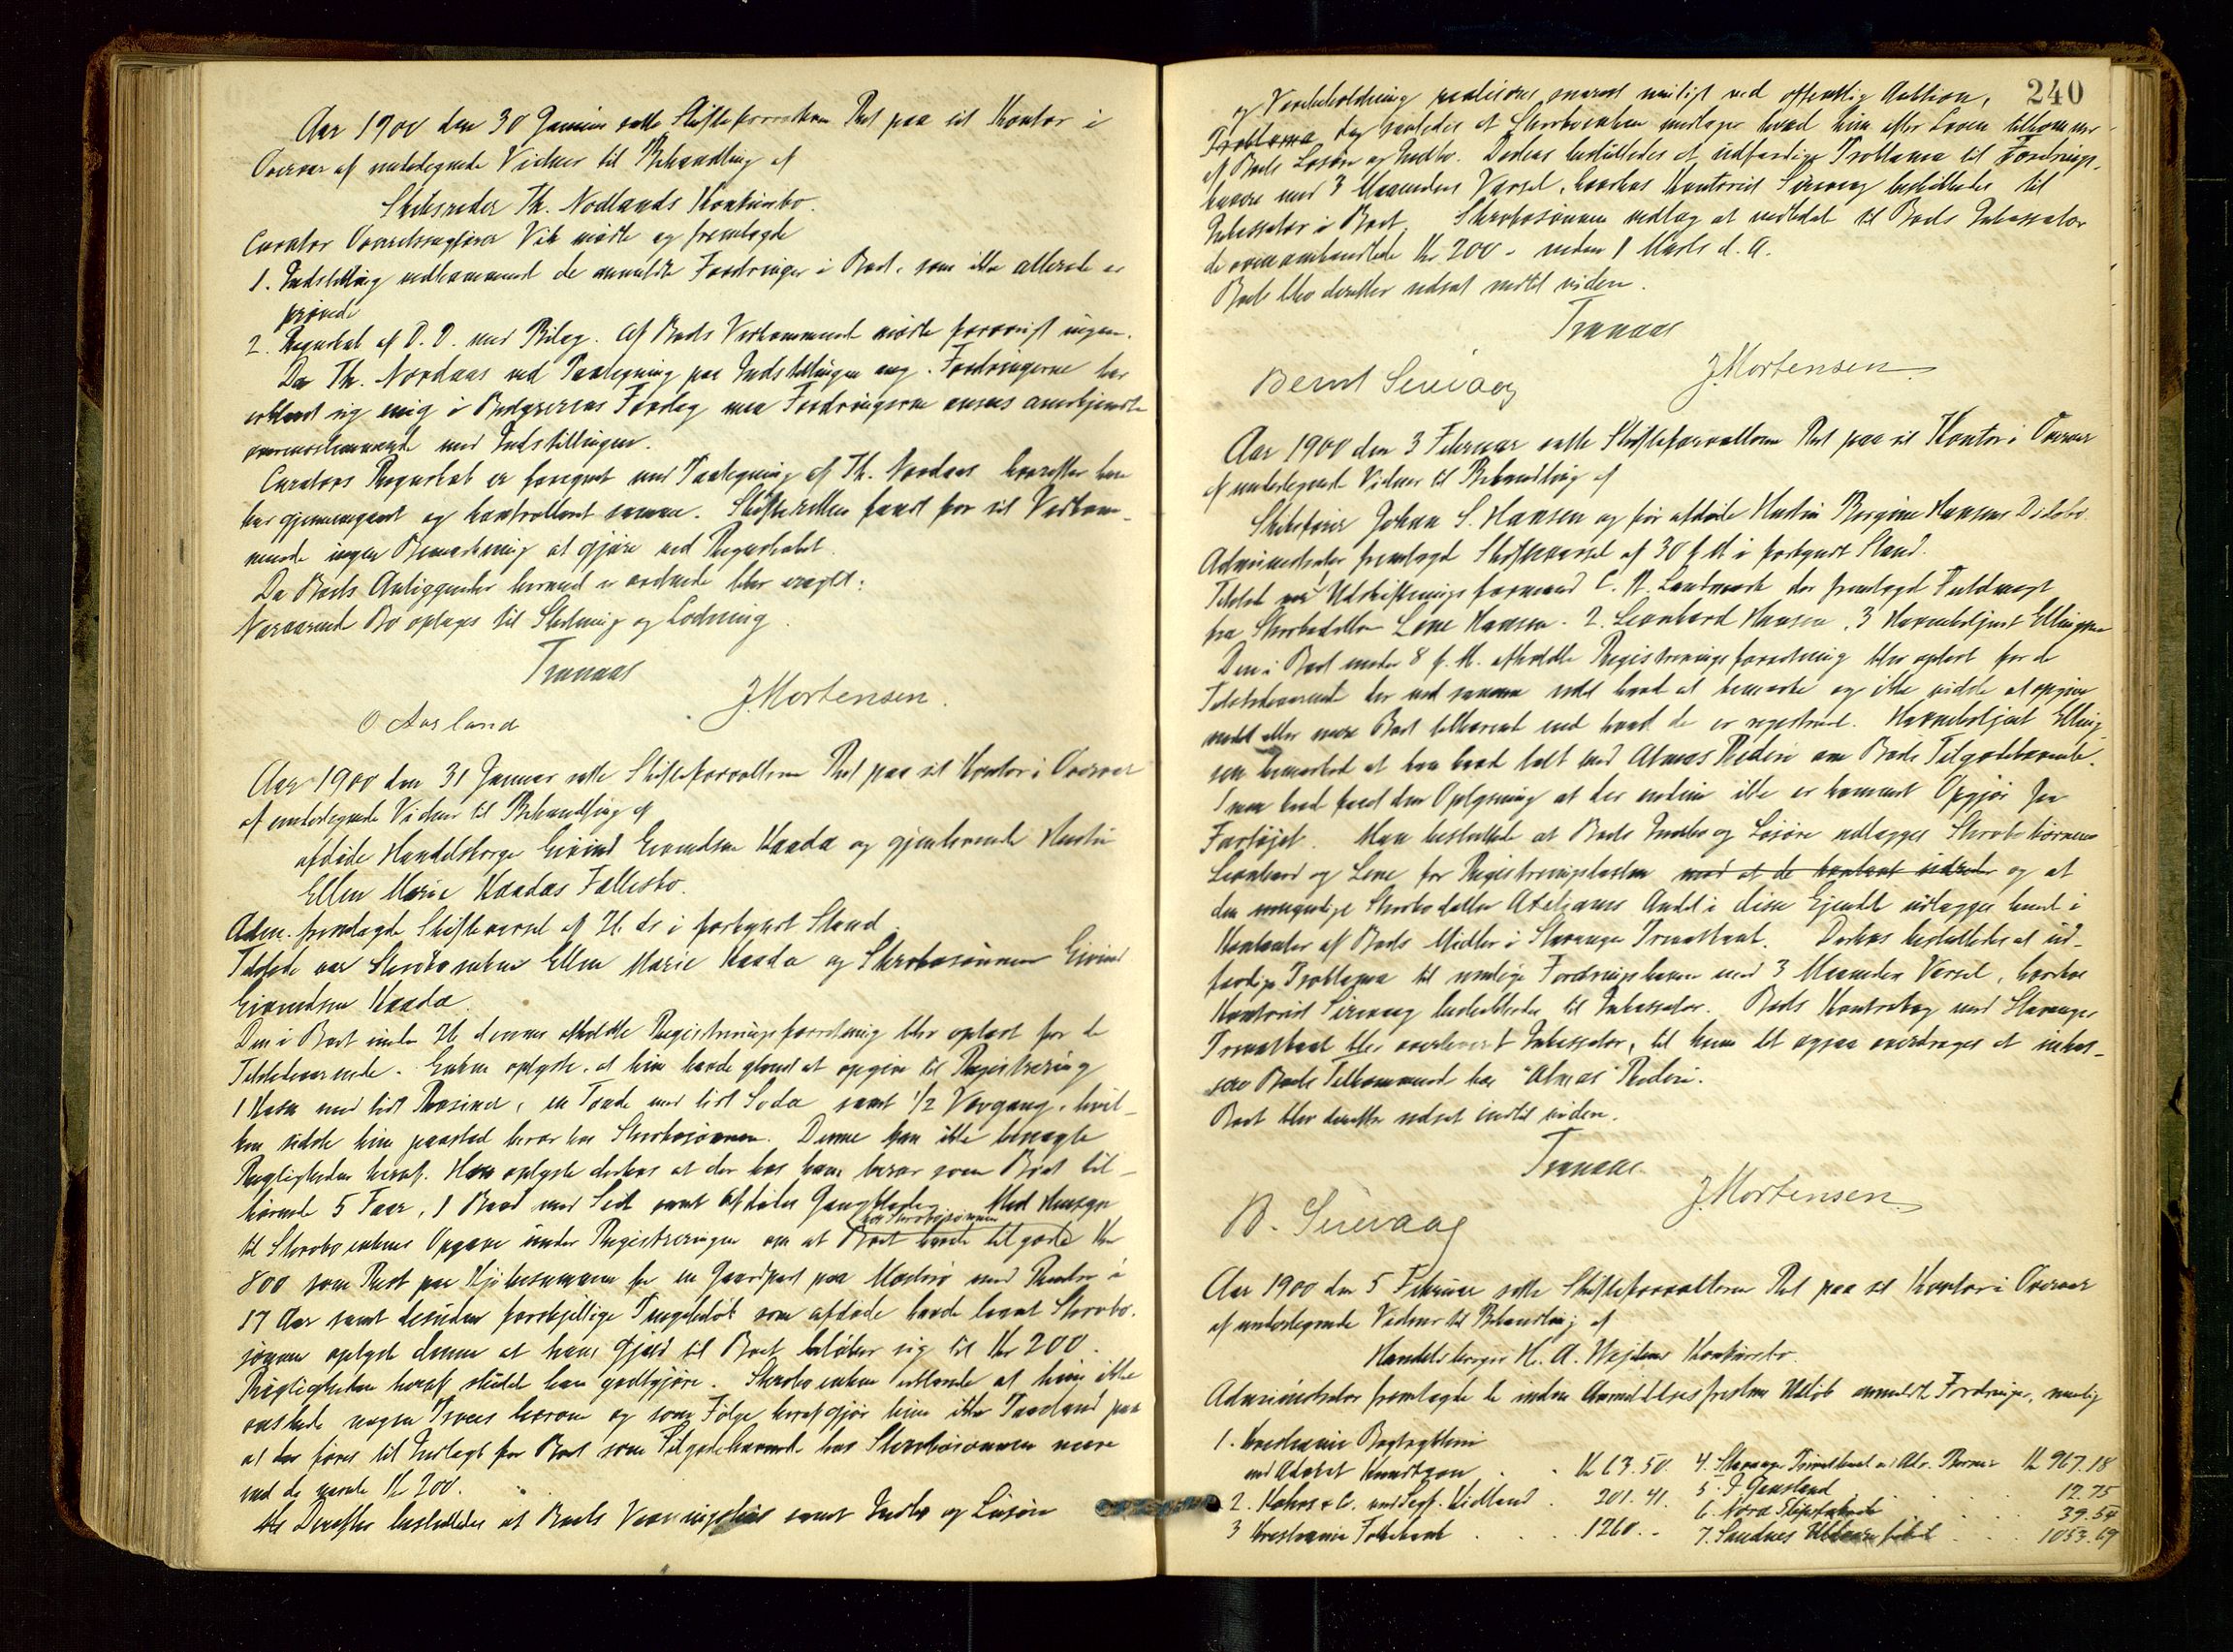 Aar 1900 den 30 Januar satte Skifteforvalteren Ret paa sit Kontor i
Overvær af undertegnede Vidner til Behandling af
Skibsreder Th. Nodlands Konkursbo.
Curator Overretssagfører Vik mødte og fremlagde
1. Indstilling vedkommende de anmeldte Fordringer i Boet, som ikke allerede er
prøvede
2. Regnskab af D. D. med Bilag. Af Boets Vedkommende mødte forøvrigt ingen.
Da Th. Nordaas ved Paategning paa Indstillingen ang. Fordringerne har
erklæret sig enig i Bestyrerens Forslag maa Fordringerne ansees anerkjendte
overensstemmende med Indstillingen.
Curators Regnskab er forsynet med Paategning af Th. Nordaas hvorefter han
har gjennemgaaet og kontrolleret samme. Skifteretten fandt for sit Vedkom-
mende ingen Bemærkning at gjøre ved Regnskabet.
Da Boets Anliggender hermed er ordnede blev eragtet:
Nærværende Bo optages til Slutning og Lodning.
Tranaas
J. Mortensen.
O Aarland
Aar 1900 den 31 Januar satte Skifteforvalteren Ret paa sit Kontor i Overvær
af undertegnede Vidner til Behandling af
afdøde Handelsborger Eivind Eivindsen Haada og gjenlevende Hustru
Ellen Marie Haadas Fællesbo.
Adm. fremlagde Skiftevarsel af ds i forkyndt Stand.
Tilstede var Skrboenken Ellen Marie Haada og Skrbosønnen Eivind
Eivindsen Haada.
Den i Boet under dennes afholdte Registreringsforretning blev oplæst for de
Tilstedeværende. Enken oplyste, at hun havde glemt at opgive til Registrering
1 Kasse med lidt Rosiner, en Tønde med lidt Soda samt 1/2 Vorgang, hvil-
ke sidste hun paastod beror hos Skrbosønnen. Denne kan ikke benægte
Rigtigheden heraf. Han oplyste derhos at der hos ham beror som Boet til-
hørende 5 Faar, 1 Baad med Seil samt afdødes Gangklæder. Med Hensyn
hos Skrbosønnen
til Skrboenkens Opgave under Registreringen om at Boet havde tilgode Kr
800 som Rest paa Kjøbesummen for en Gaardpart paa Mosterø med Renter i
17 Aar samt desuden forskjellige Pengebeløb som afdøde havde laant Skrbo-
sønnen oplyste denne at hans Gjæld til Boet beløber sig til Kr 200.
Rigtigheden heraf skulde han godtgjøre. Skrboenken erklærede at hun ikke
ønskede nogen Proces herom og som Følge heraf gjør hun ikke Paastand paa
at der føres til Indtægt for Boet som Tilgodehavende hos Skrbosønnen mere
end de nævnte Kr 200.
Derefter besluttedes at Boets samt Indbo og Løsøre
240
og Varebeholdning realiseres snarest muligt ved offentlig Auktion,
dog saaledes at Skrboenken udtager hvad hun efter Loven tilkommer
af Boets Løsøre og Indbo. Derhos besluttedes at udfærdige Proklama til Fordrings-
havere med 3 Maaneders Varsel, hvorhos Kontorist Sirevaag beskikkedes til
Inkassator i Boet. Skrbosønnen vedtog at indbetale til Boets Inkassator
de ovenomhandlede Kr 200 - inden 1 Marts d. A.
Boet blev derefter udsat indtil videre.
Tranaas
Bernt Sirevaag
J. Mortensen.
Aar 1900 den 3 Februar satte Skifteforvalteren Ret paa sit Kontor i Overvær
af undertegnede Vidner til Behandling af
Skibsfører Johan S. Hansen og før afdøde Hustru Bergine Hansens Dødsbo
Administrator fremlagde Skiftevarsel af 30 f. M. i forkyndt Stand.
Tilstede var Udskiftningsformand C. A. Landmark der fremlagde Fuldmagt
fra Skrbodatter Lene Hansen. 2. Leonhard Hansen, 3 Havnebetjent Ellingsen
Den i Boet under 8 f. M. afholdte Registreringsforretning blev oplæst for de
Tilstedeværende der ved samme intet havde at bemærke og ikke vidste at opgive
andet eller mere Boet tilhørende end hvad de er registreret. Havnebetjent Elling-
sen bemærked at han havde talt med Atnas Rederi om Boets Tilgodehavende.
man havde faaet den Oplysning at der endnu ikke er kommet Opgjør fra
Fartøjet. Man besluttede at Boets Indbo og Løsøre udlægges Skrbobørnene
Leonhard og Lene for Registreringstaksten med at de kontant indbetaler og at
den umyndige Skrbodatter Andel i disse Ejendele udlægges hende i
Kontanter af Boets Midler i Stavanger Privatbank. Derhos besluttedes at ud-
færdige Proklama til mulige Fordringshavere med 3 Maaneders Varsel, hvorhos
Kontorist Sirevaag beskikkedes til Inkassator. Boets Kontrabog med Stavanger
Privatbank blev overleveret Inkassator, til hvem det ogsaa overdroges at inkas-
sere Boets Tilkommende hos "Atnas" Rederi.
Boet blev derefter udsat indtil videre.
Tranaas
B. Sirevaag
J. Mortensen.
Aar 1900 den 5 Februar satte Skifteforvalteren Ret paa sit Kontor i Overvær
af undertegnede Vidner til Behandling af
Handelsborger H. A. Konkursbo.
Administrator fremlagde de inden Anmeldelsesfristens Udløb anmeldte Fordringer, nemlig
1. Kristiania Bogtrykkeri
ved Advokat Knudtzon . . Kr 63.50.
2. Kahrs & C. ved Sagf. Kidland . 201.41.
3 Kristiania Folkebank . . . 1260.-
4. Stavanger Privatbank ved Adv. Kr 967.18
5. J. Gausland . . . 12.75
6. Nora . . . 39.54
7. Sandnes . . . 1053.69